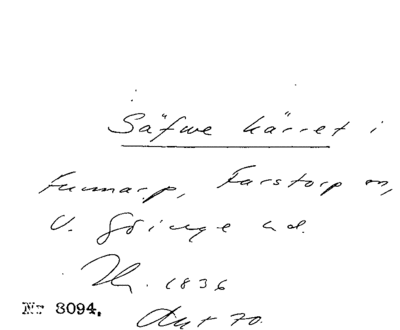 Säfwe kärret i
Funnarp, Farstorp sn,
V. Göinge hd.
1836
No 3094.
70.